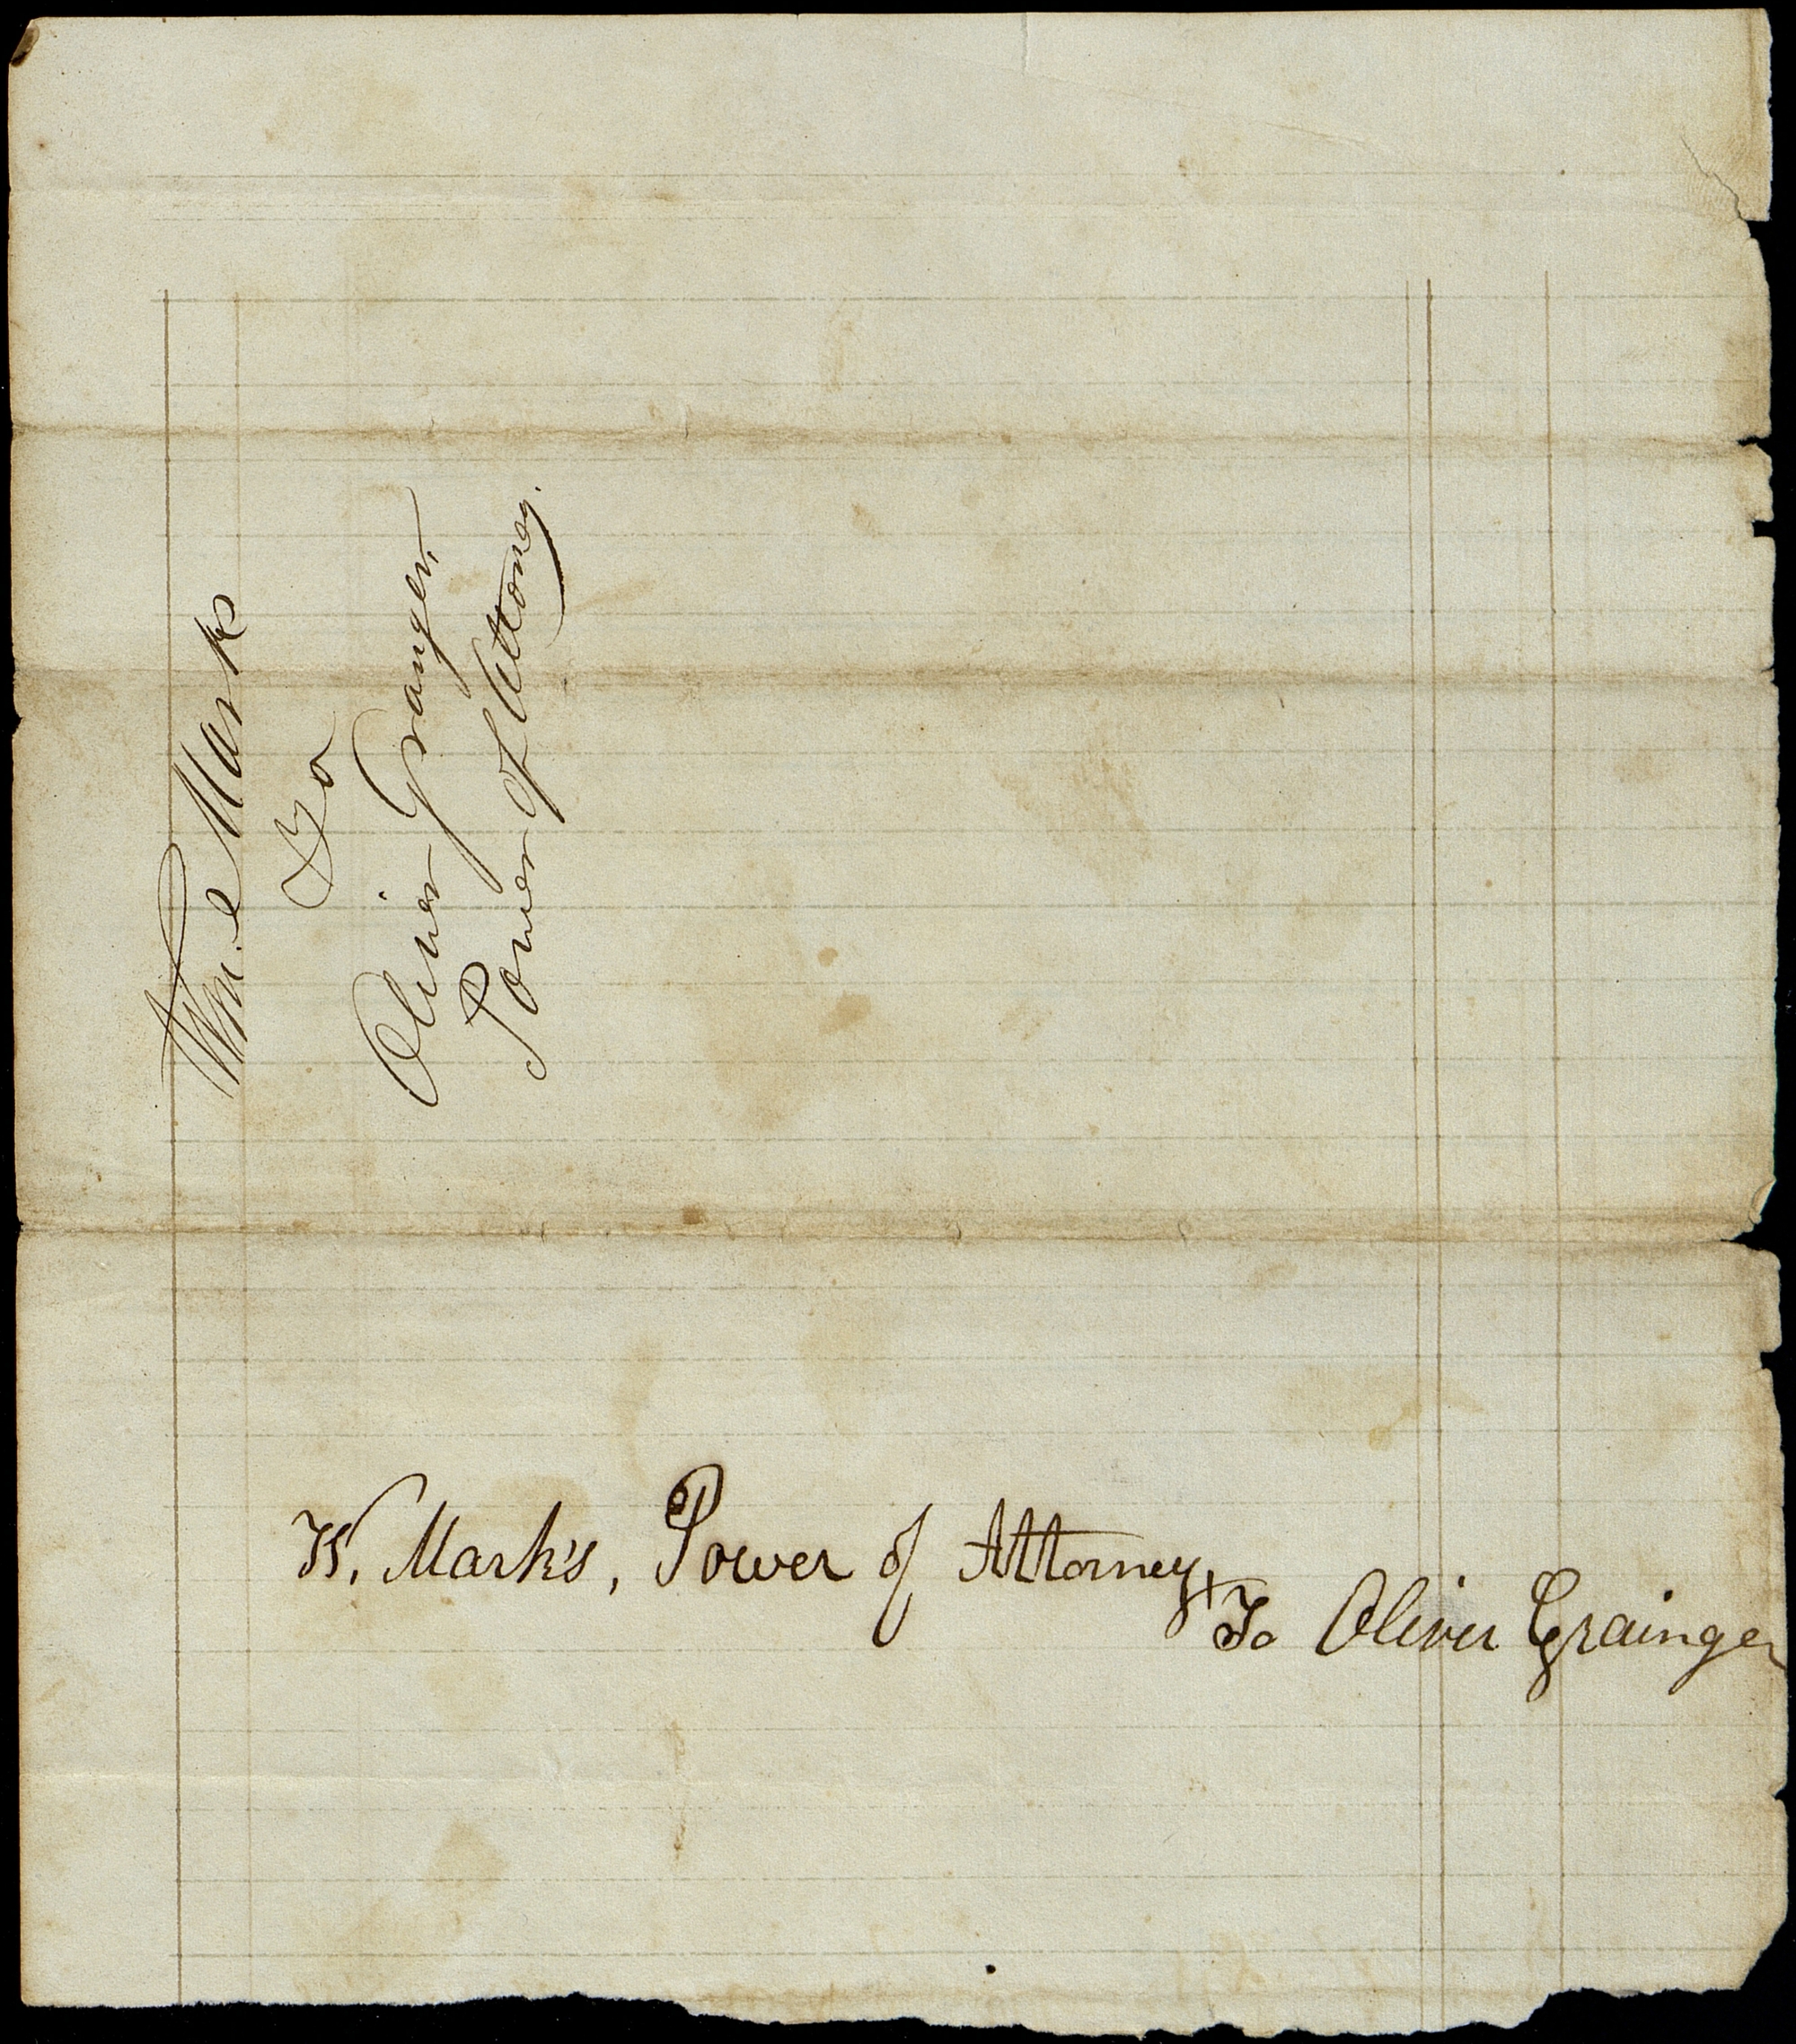 Wm. Marks
To
Oliver Granger,
Power of Attorney.
W. Mark's, Power of Attorney
To Oliver Grainger